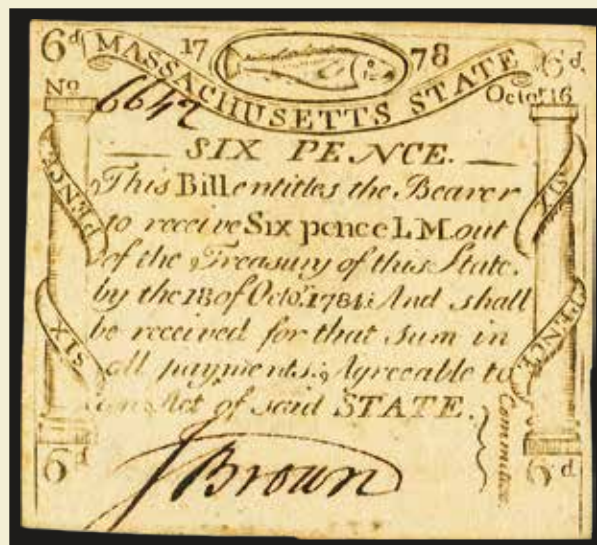 6d 17 78 6d.
MASSACHUSETTS STATE
No 6642 Octor. 16
SIX PENCE.
This Bill entitles the Bearer
to receive Six pence L M. out
of the Treasury of this State.
by the 18 of Octor. 1784: And shall
be received for that sum in
all payments: Agreeable to
an Act of said STATE.
SIX PENCE
SIX PENCE
Committee.
J Brown
6d 6d